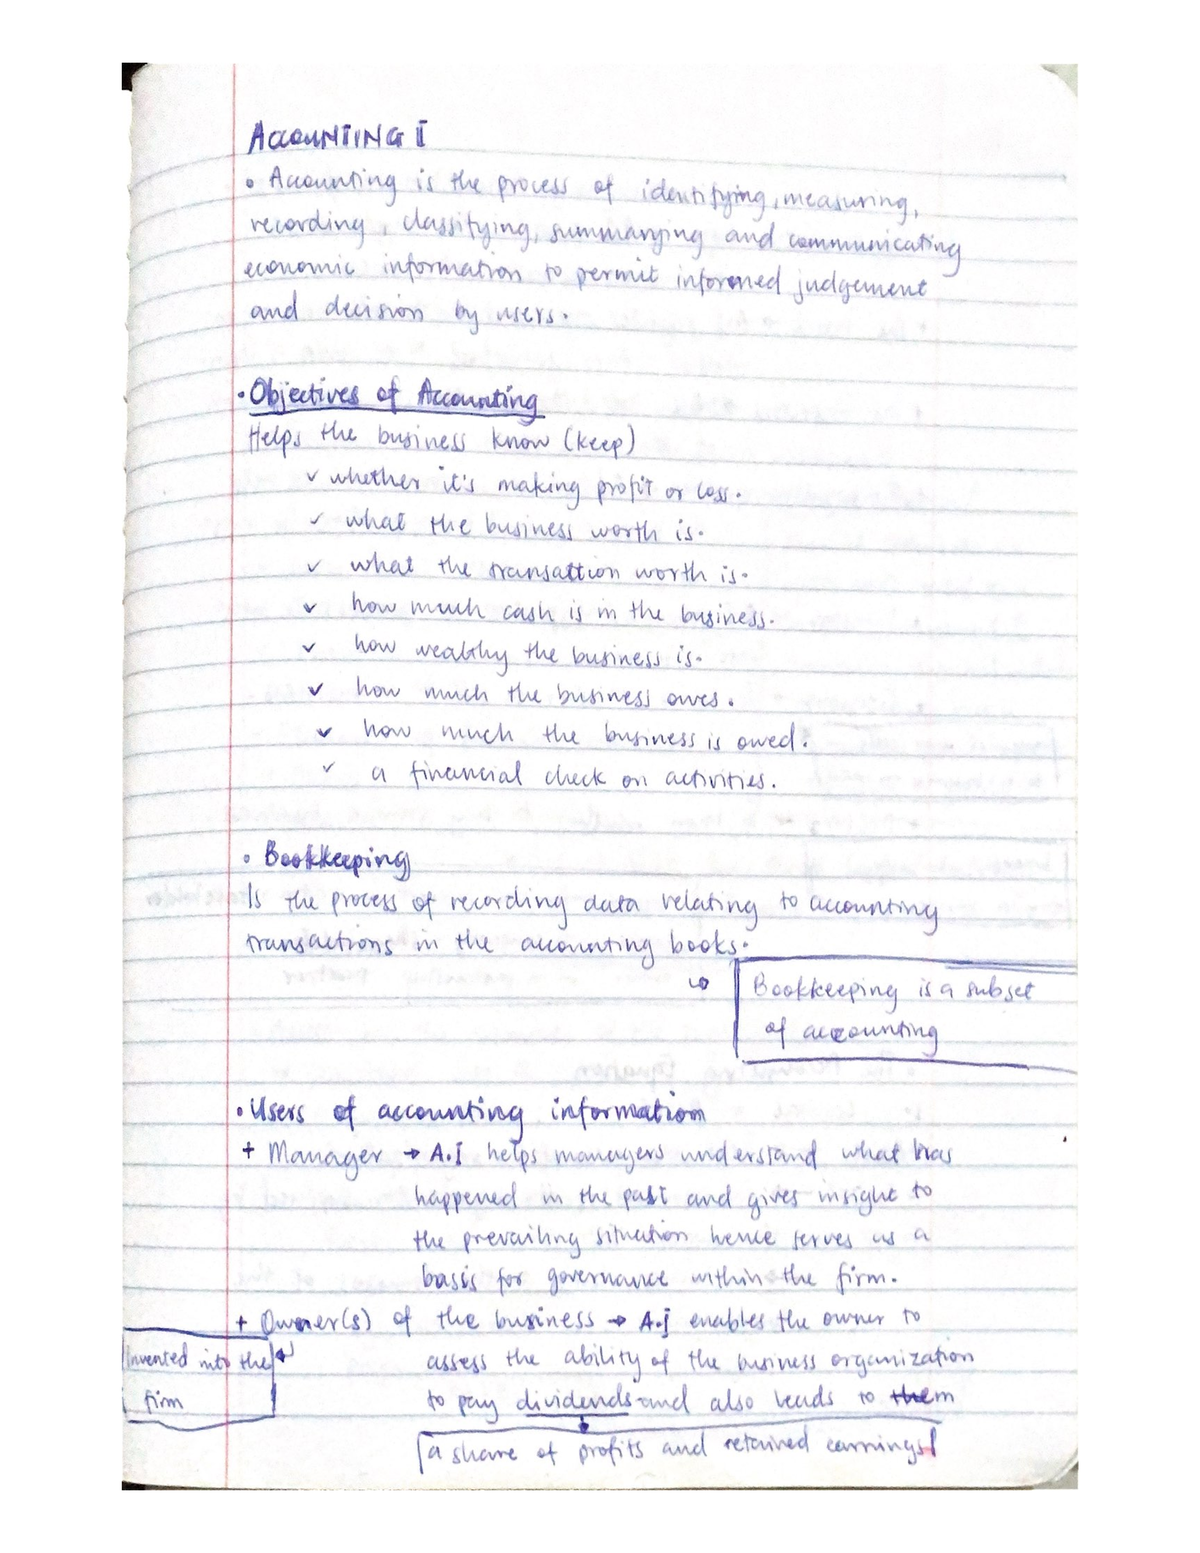 ACCOUNTING I
• Accounting is the process of identifying, measuring,
recording, classifying, summarrying and communicating
economic information to permit informed judgement
and decision by users.
• Objectives of Accounting
Helps the business know (keep)
✓ whether it's making profit or loss.
✓ what the business worth is.
✓ what the transaction worth is.
✓ how much cash is in the business.
✓ how wealthy the business is.
✓ how much the business owes.
✓ how much the business is owed.
✓ a financial check on activities.
• Bookkeeping
Is the process of recording data relating to accounting
transactions in the accounting books.
↳ Bookkeeping is a subset
of accounting
• Users of accounting information
+ Manager → A.I helps managers understand what has
happened in the past and gives insight to
the prevailing situation hence serves as a
basis for governance within the firm.
+ Owner(s) of the business → A.I enables the owner to
Invented into the
firm
assess the ability of the business organization
to pay dividends and also leads to them
a share of profits and retained earnings